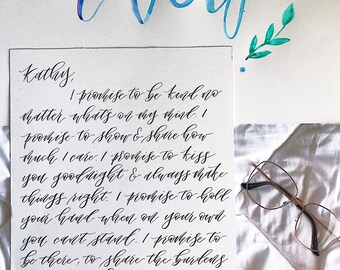 Kathy,
I promise to be kind no
matter whats on my mind. I
promise to show & share how
much I care. I promise to kiss
you goodnight & always make
things right. I promise to hold
your hand when on your own
you can't stand. I promise to
be there, to share the burdens